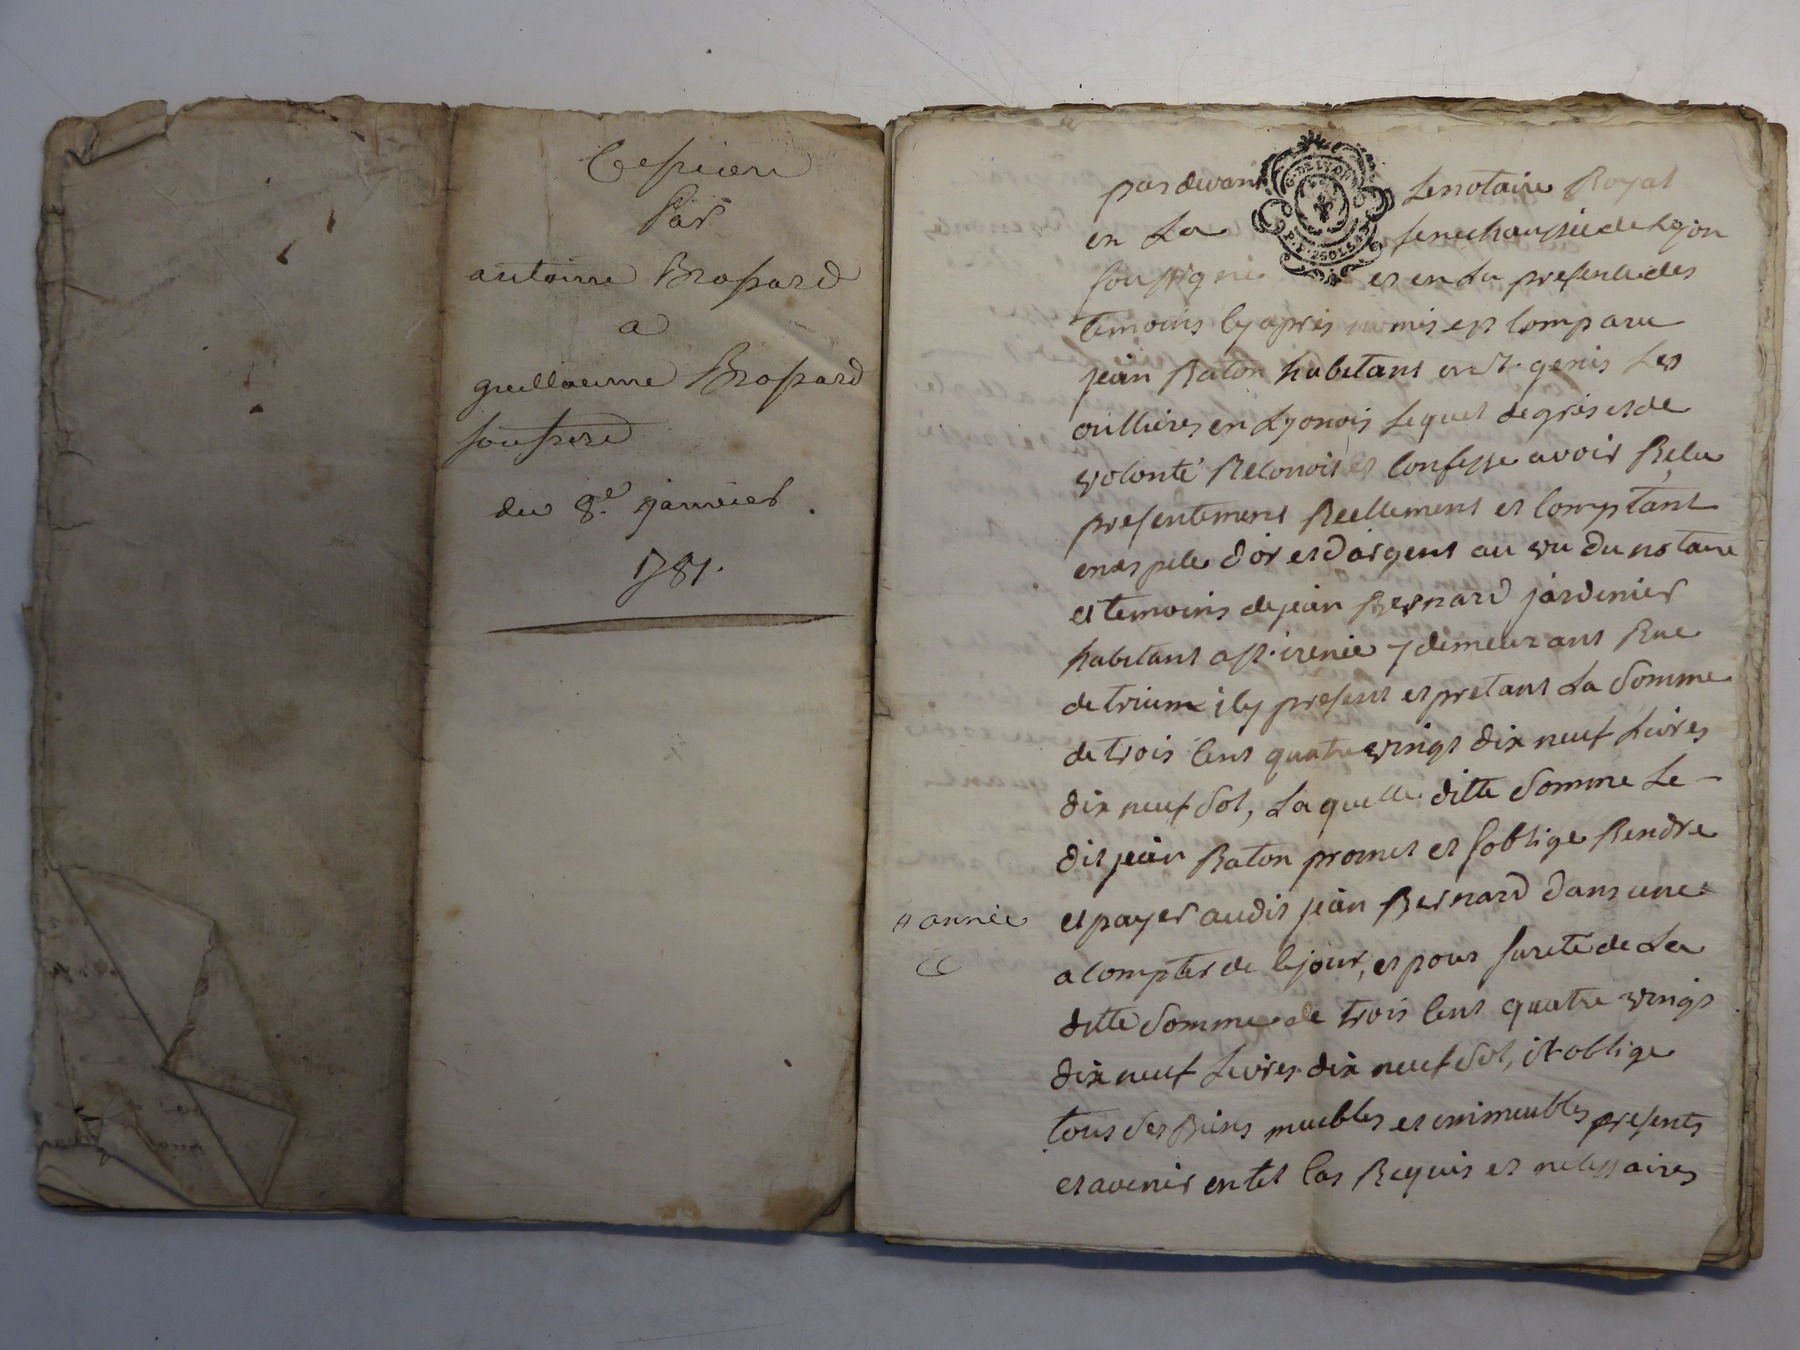 Cession
Par
antoine Brossard
a
guillaume Brossard
son frere
du 8.e janvier
1781.
par devant Le notaire Royal
en La senechaussée de Lyon
soussigné et en La presence des
temoins cy apres nommés est comparu
jean Raton habitant en st. genis Les
oullieres en Lyonois Lequel de gré et de
volonté Reconois et confesse avoir Reçeu
presentement Reellement et comptant
en espece d'or et d'argent au vu du notaire
et temoins de jean Bernard jardinier
habitant a st. irenée y demeurant Rue
de trium icy present et pretant La Somme
de trois cent quatre vingt dix neuf Livres
dix neuf Sol, La quelle ditte Somme Le
dit jean Raton promet et s'oblige Rendre
et payer audit jean Bernard dans une #
# année
a compter de ce jour, et pour sureté de La
ditte Somme de trois cent quatre vingt
dix neuf Livres dix neuf Sol, il oblige
tous Ses Biens meubles et immeubles presents
et avenir en tel cas Requis et necessaires